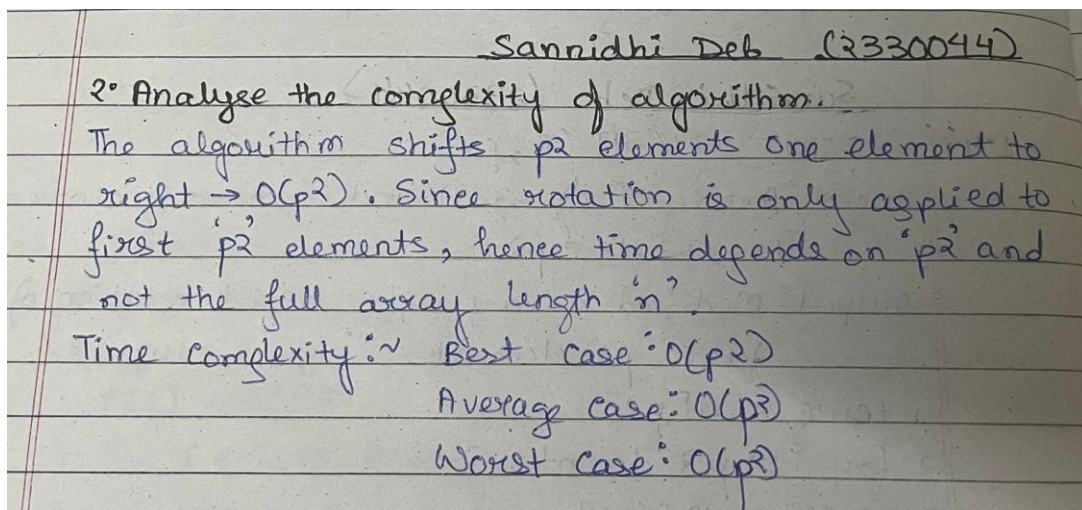 Sannidhi Deb (2330044)
2° Analyse the complexity of algorithm.
The algorithm shifts p2 elements one element to
right → O(p2). Since rotation is only applied to
first 'p2' elements, hence time depends on 'p2' and
not the full array length 'n'.
Time Complexity :~ Best case : O(p2)
Average case : O(p2)
Worst case : O(p2)